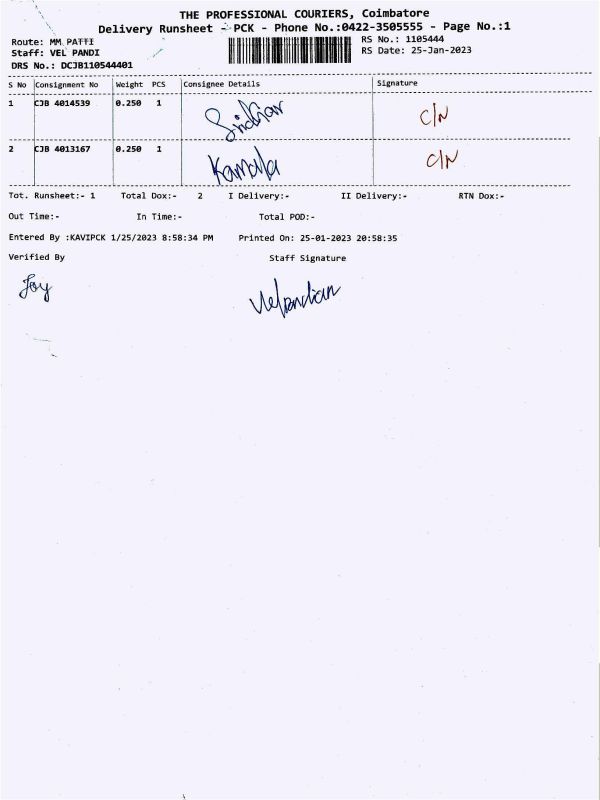 THE PROFESSIONAL COURIERS, Coimbatore
Delivery Runsheet - PCK - Phone No.:0422-3505555 - Page No.:1
Route: MM PATTI
RS No.: 1105444
Staff: VEL PANDI
RS Date: 25-Jan-2023
DRS No.: DCJB110544401
S No Consignment No Weight PCS Consignee Details Signature
1 CJB 4014539 0.250 1 Sridhar C/N
2 CJB 4013167 0.250 1 Kamala C/N
Tot. Runsheet:- 1 Total Dox:- 2 I Delivery:- II Delivery:- RTN Dox:-
Out Time:- In Time:- Total POD:-
Entered By :KAVIPCK 1/25/2023 8:58:34 PM Printed On: 25-01-2023 20:58:35
Verified By Staff Signature
Joy Velpandian